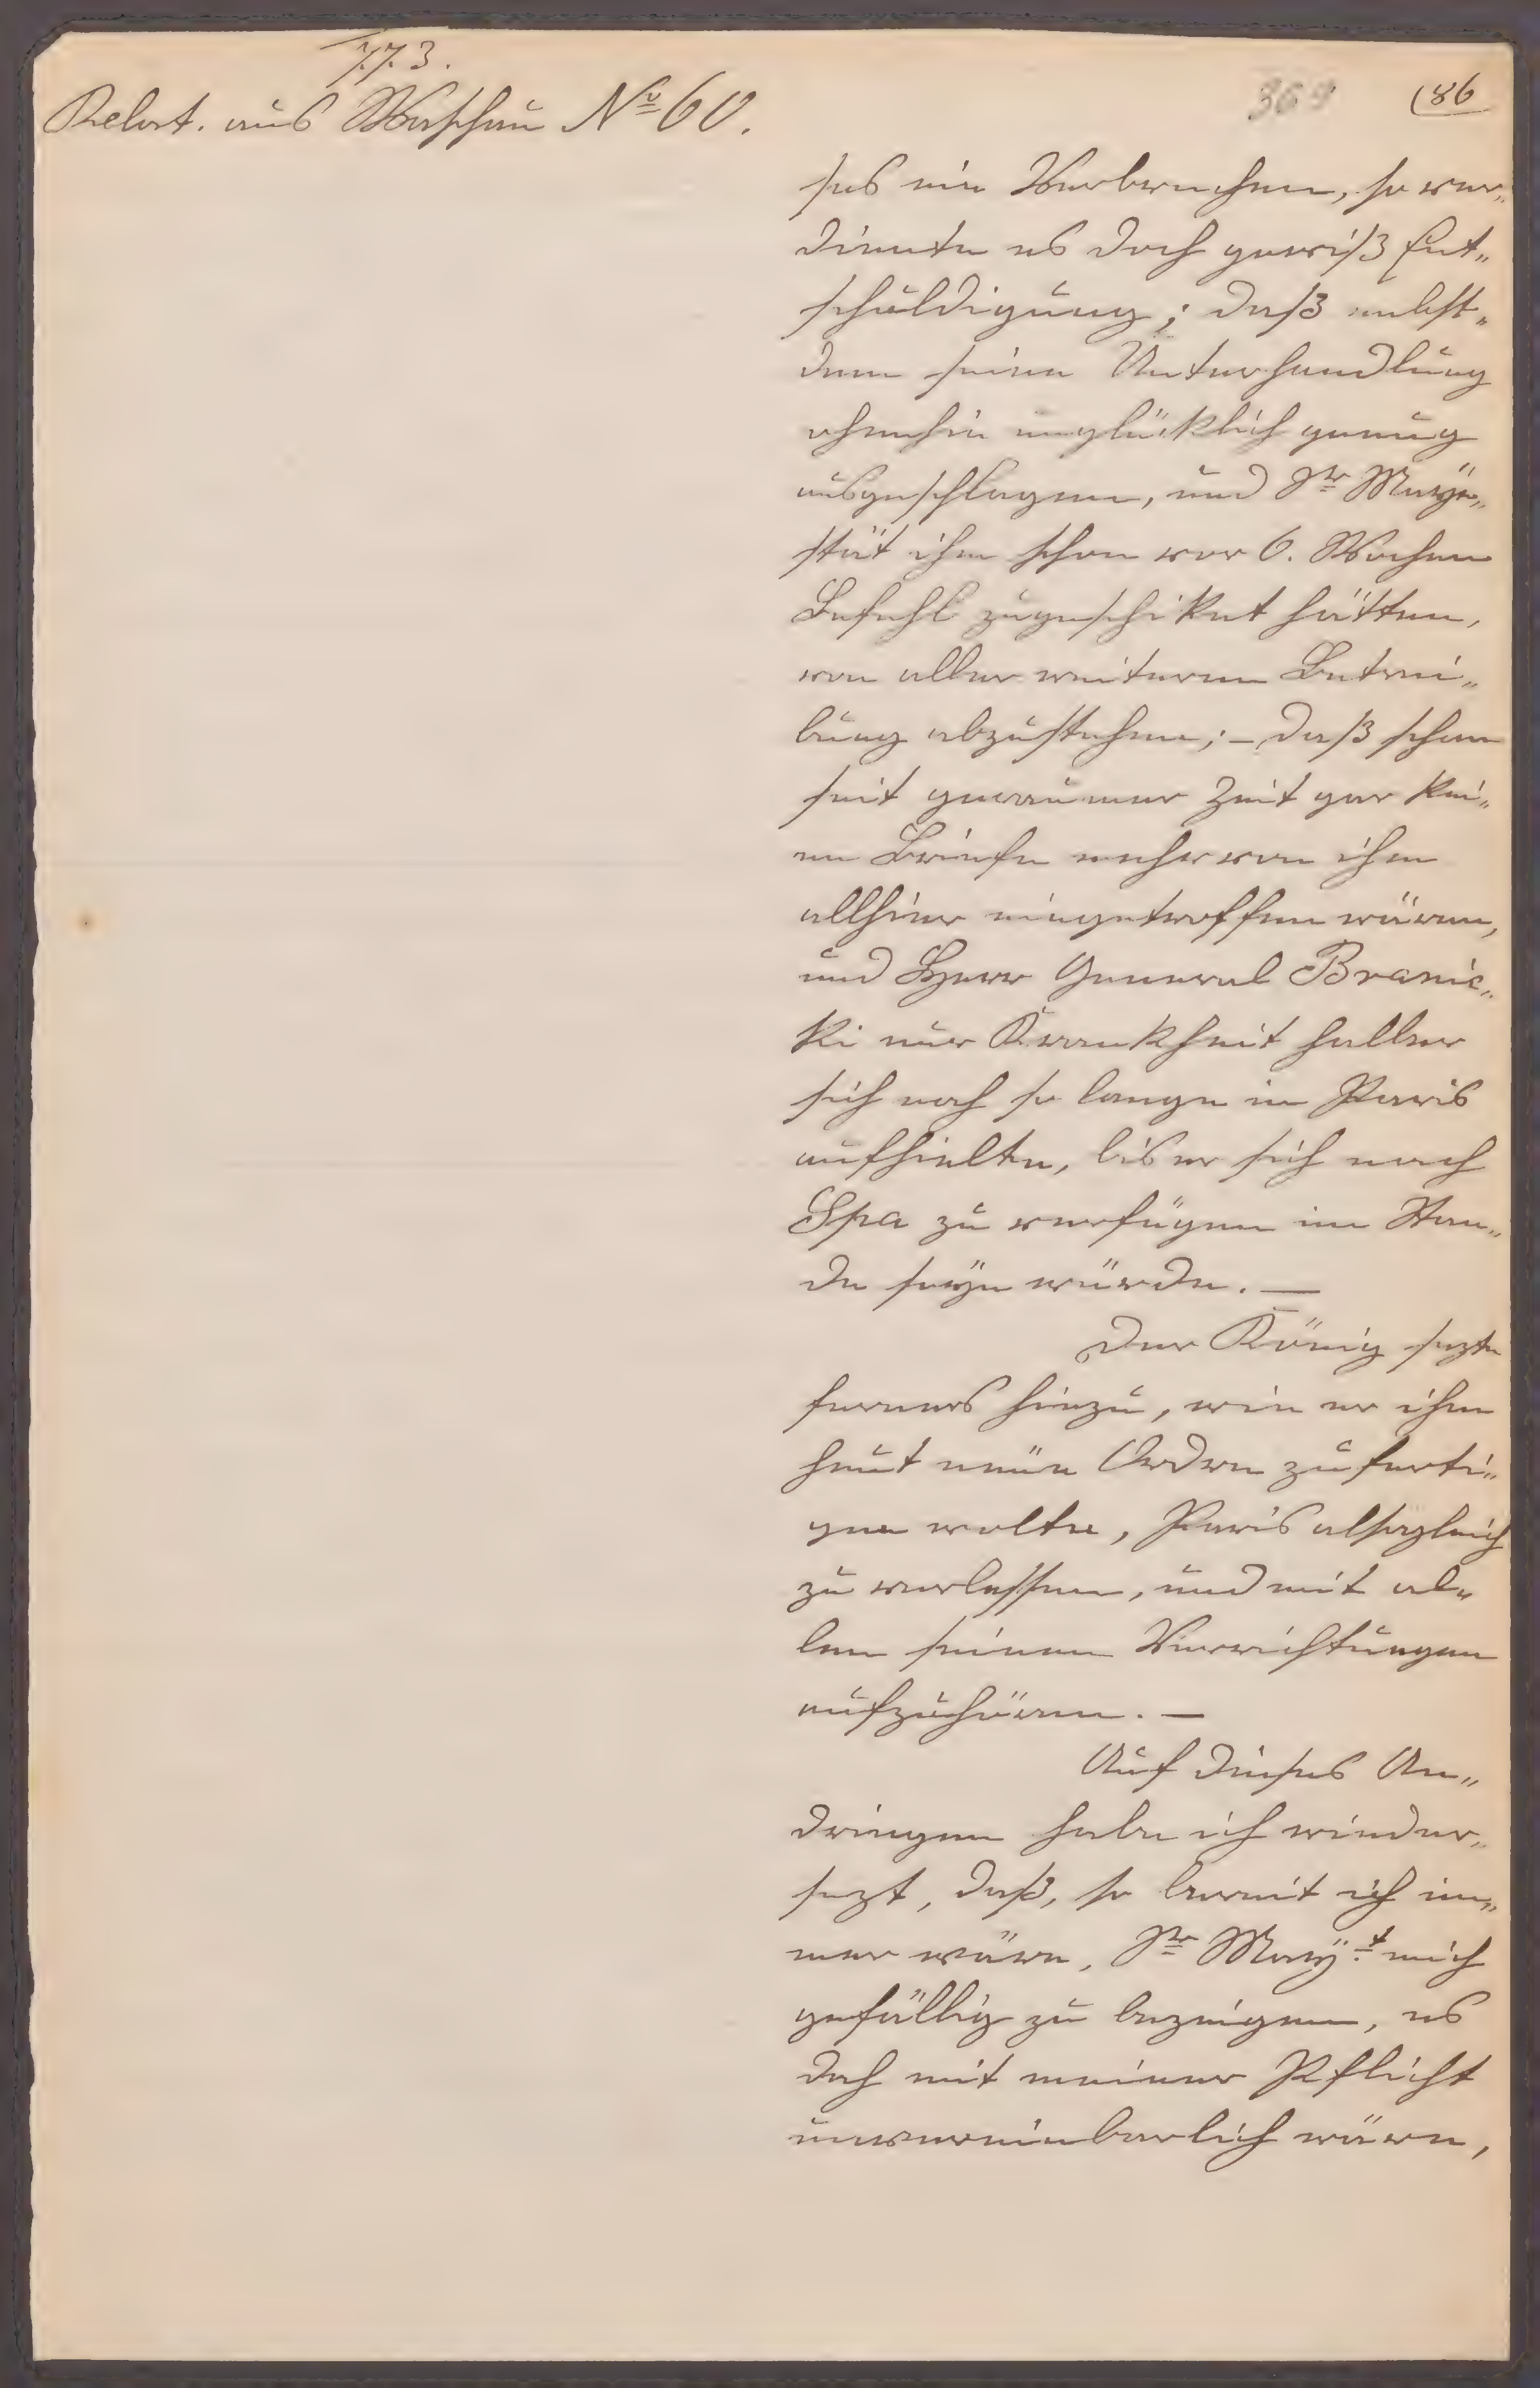 773.
Relat. aus Warschau No 60.
369 (86
ses ein Verbrechen, so ver„
diente es doch gewiß Ent„
schuldigung; daß nebst„
dem seine Unterhandlung
ohnehin unglücklich genug
ausgeschlagen, und Sr Maÿe„
stät ihm schon vor 6. Wochen
Befehl zugeschiket hätten,
von aller weiteren Betrei„
bung abzustehen; – daß schon
seit geraumer Zeit gar kei„
ne Briefe mehr von ihm
allhier eingetroffen wären,
und Herr General Branic„
ki nur Krankheit halber
sich noch so lange in Paris
aufhielte, bis er sich nach
Spa zu verfügen im Stan„
de seÿn würde. —
Der König sezte
ferners hinzu, wie er ihm
heut neüe Ordre zuferti„
gen wolte, Paris alsogleich
zu verlassen, und mit al„
len seinen Verrichtungen
aufzuhören. —
Auf dieses An„
dringen habe ich wieder„
sezt, daß, so bereit ich im„
mer wäre, Sr Maÿ:t mich
gefällig zu bezeigen, es
doch mit meiner Pflicht
unvereinbarlich wäre,